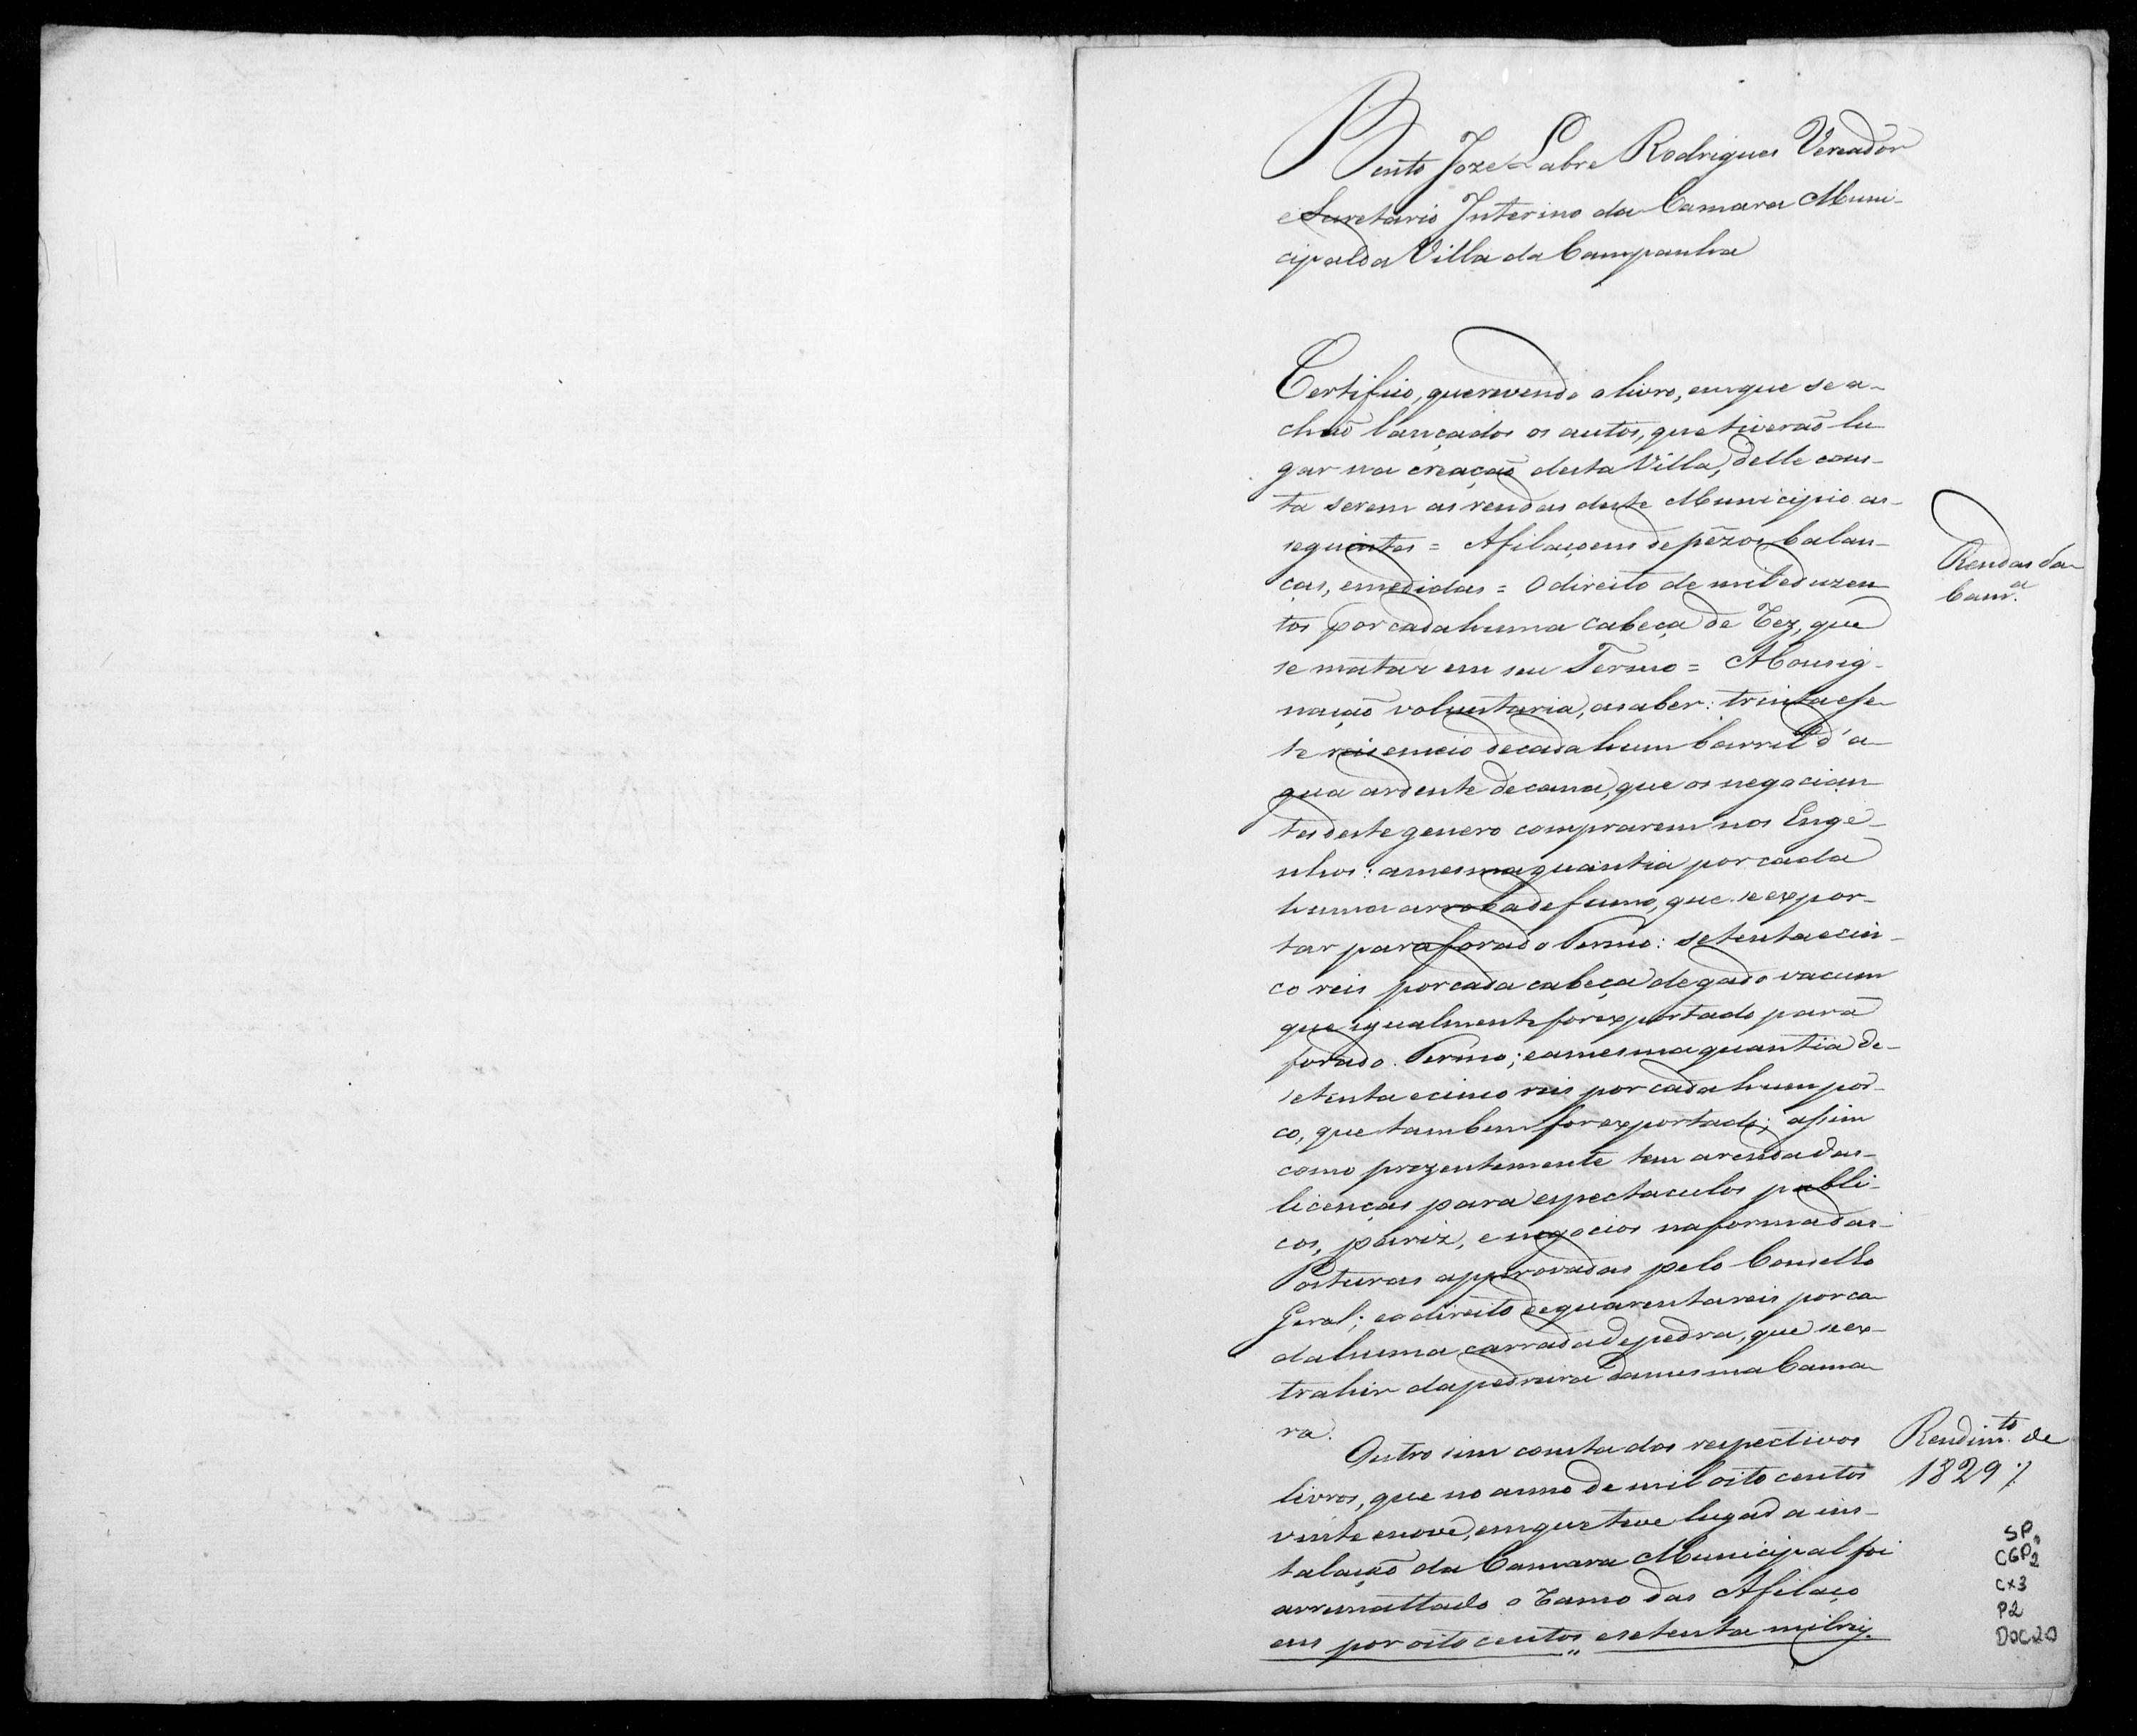 Bento Joze Labre Rodrigues Vereador
e Secretario Interino da Camara Muni-
cipal da Villa da Campanha
Certifico, que revendo o livro, em que se a-
chaõ lançados os autos, que tiveraõ lu
gar na creaçaõ desta Villa, delle cons-
ta serem as rendas deste Municipio as-
seguintes = Afilaçoens de pezos balan-
ças, e medidas = O direito de mil e duzen
tos por cada huma cabeça de Rez, que
se matar em seu Termo = A Consig-
naçaõ voluntaria, a saber: trinta e se
te reis e meio de cada hum barril d'a-
gua ardente de cana, que os negocian
tes deste genero comprarem nos Enge-
nhos: a mesma quantia por cada
huma arroba de fumo, que se expor-
tar para fora do Termo: setenta e cin-
co reis por cada cabeça de gado vacum
que igualmente for exportado para
fora do Termo; e a mesma quantia de-
setenta e cinco reis por cada hum por-
co, que tambem for exportado; assim
como prezentemente tem a renda das-
licenças para espectaculos publi-
cos, e negocios na forma das-
Posturas approvadas pelo Conselho
Geral; e o direito de quarenta reis por ca
da huma carrada de pedra, que se ex-
trahir da pedreira da mesma Cama
ra.
Outro sim consta dos respectivos
livros, que no anno de mil oito centos
vinte e nove, em que teve lugar a ins-
talaçaõ da Camara Municipal foi
arremattado o Ramo das Afilaço
ens por oito centos e setenta mil reis.
Rendas da
Camr.ª
Rendim.to de
1829
SP
CGP2
CX3
P2
DOC20